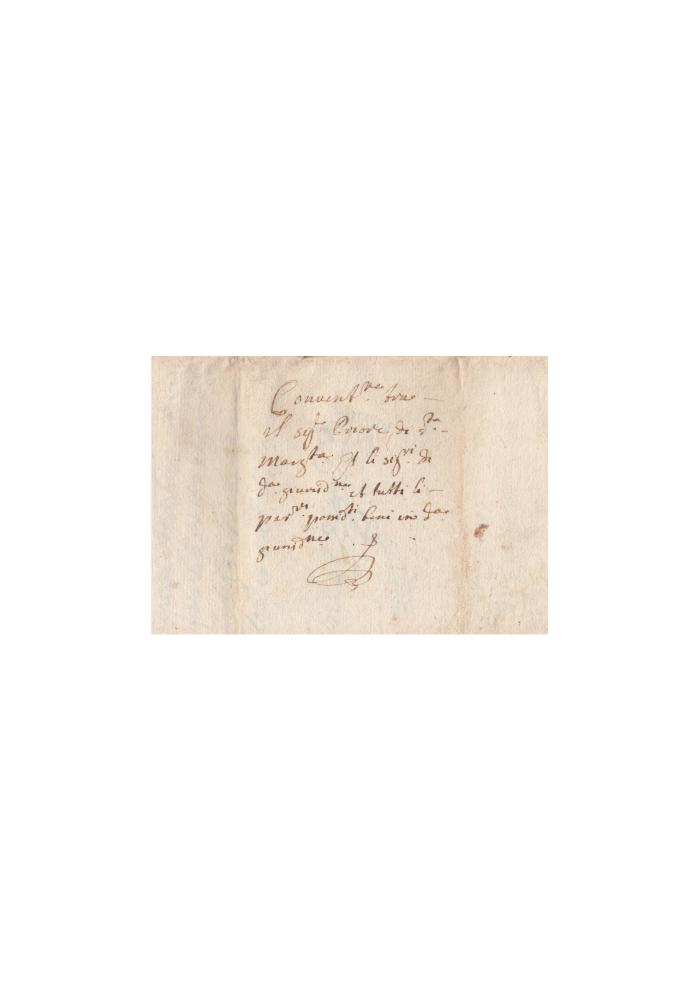 Convent.ne tra
il sig.r Priore di S.ta
Marg.ta et li sig.ri di
d.a giurisd.ne et tutti li
par.ri possid.ti beni in d.a
giurisd.ne